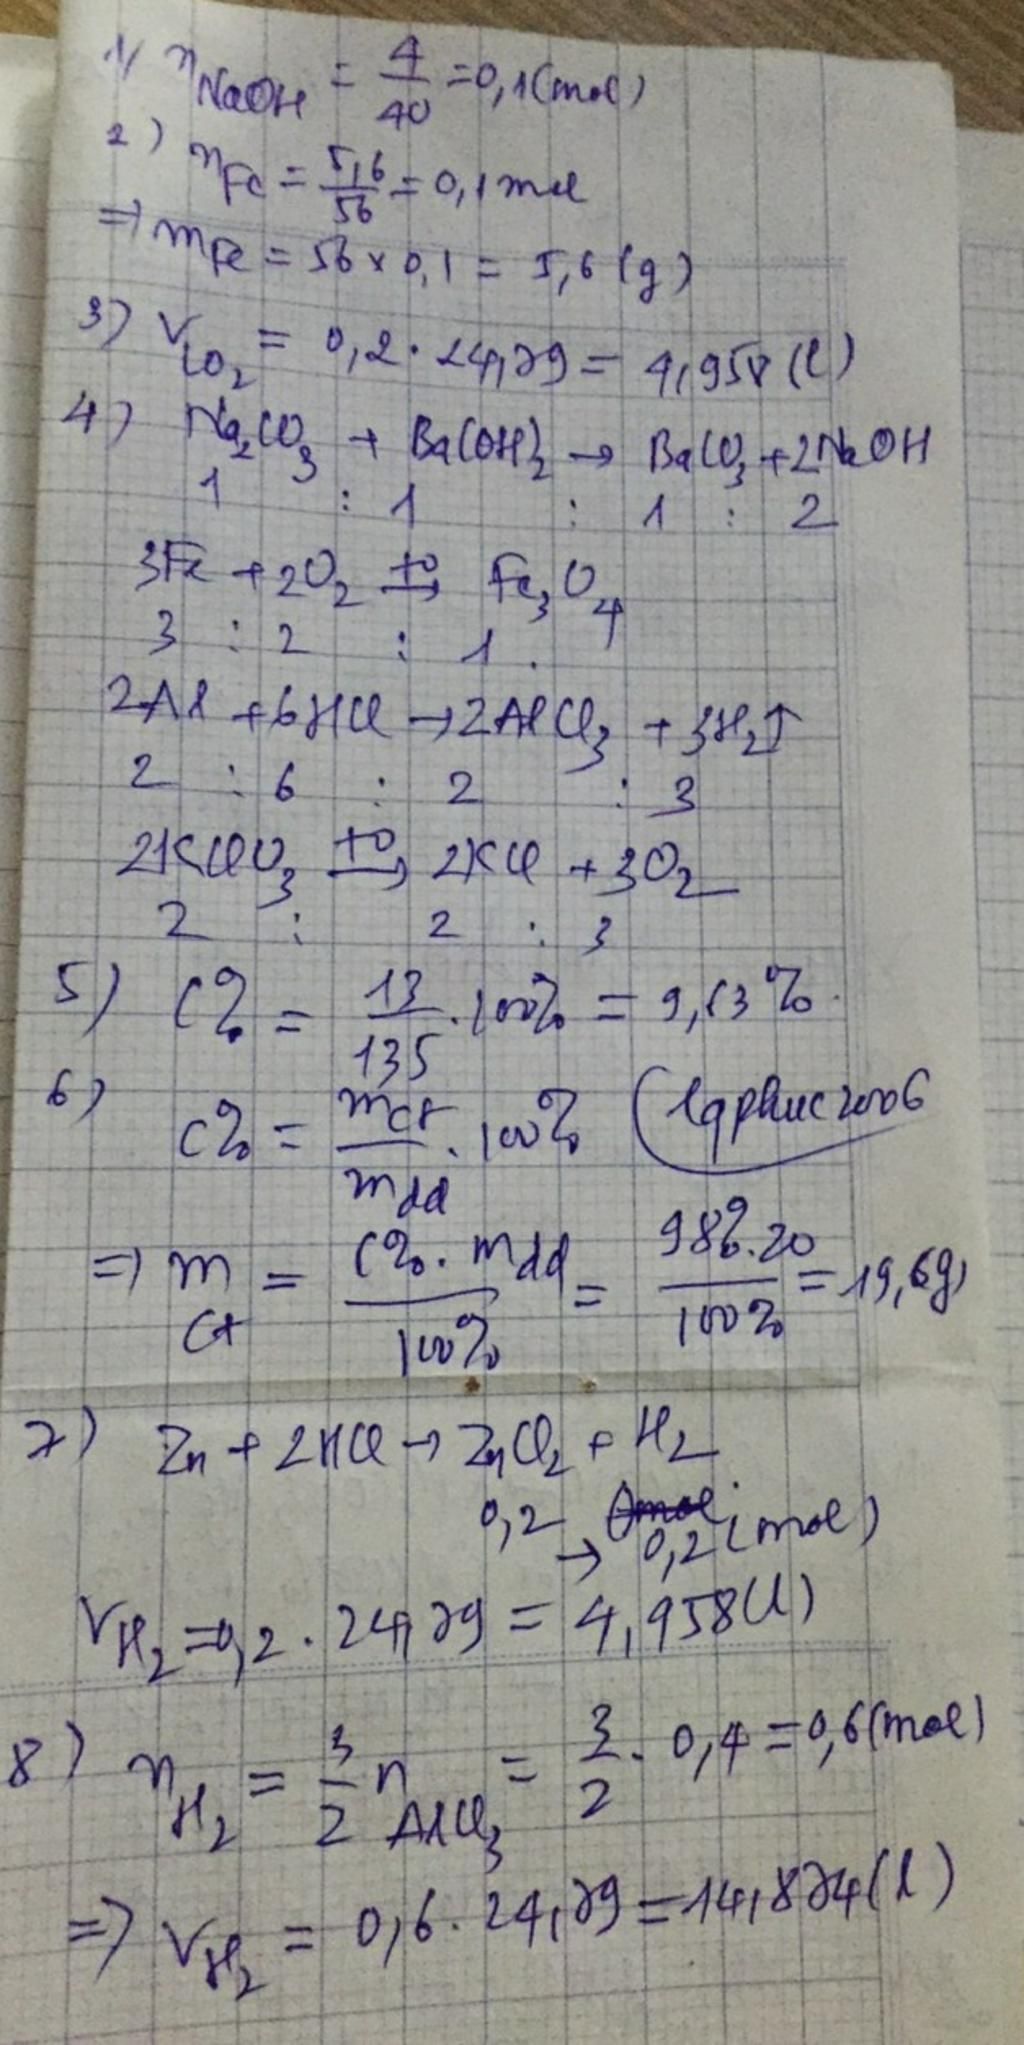 1) nNaOH = 4/40 = 0,1 (mol)
2) nFe = 5,6/56 = 0,1 mol
=> mFe = 56 x 0,1 = 5,6 (g)
3) VCO₂ = 0,2 . 24,79 = 4,958 (l)
4) Na₂CO₃ + Ba(OH)₂ → BaCO₃ + 2NaOH
1 : 1 : 1 : 2
3Fe + 2O₂ t° → Fe₃O₄
3 : 2 : 1.
2Al + 6HCl → 2AlCl₃ + 3H₂↑
2 : 6 : 2 : 3
2KClO₃ t° → 2KCl + 3O₂
2 : 2 : 3
5) C% = 13/135 . 100% = 9,63%
6) C% = mct/mdd . 100% (lqphuc2006
=> mct = C% . mdd/100% = 98% . 20/100% = 19,6g
7) Zn + 2HCl → ZnCl₂ + H₂
0,2 → 0,2 (mol)
VH₂ = 0,2 . 24,79 = 4,958 (l)
8) nH₂ = 3/2 nAlCl₃ = 3/2 . 0,4 = 0,6 (mol)
=> VH₂ = 0,6 . 24,79 = 14,874 (l)